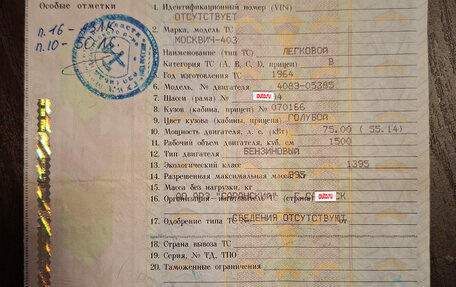 Особые отметки
п. 16 -
п. 10 -
1. Идентификационный номер (VIN)
ОТСУТСТВУЕТ
2. Марка, модель ТС
МОСКВИЧ-403
3. Наименование (тип ТС) ЛЕГКОВОЙ
4. Категория ТС (A, B, C, D, прицеп) B
5. Год изготовления ТС 1964
6. Модель, № двигателя 408Э-05385
7. Шасси (рама) № auto.ru 4
8. Кузов (кабина, прицеп) № 070166
9. Цвет кузова (кабины, прицепа) ГОЛУБОЙ
10. Мощность двигателя, л. с. (кВт) 75.00 (55.14)
11. Рабочий объем двигателя, куб. см 1500
12. Тип двигателя БЕНЗИНОВЫЙ
13. Экологический класс 1395
14. Разрешенная максимальная масса, кг
995
15. Масса без нагрузки, кг
16. Организация-изготовитель ТС (страна)
auto.ru
17. Одобрение типа ТС № СВЕДЕНИЯ ОТСУТСТВУЮТ
18. Страна вывоза ТС
19. Серия, № ТД, ТПО
20. Таможенные ограничения